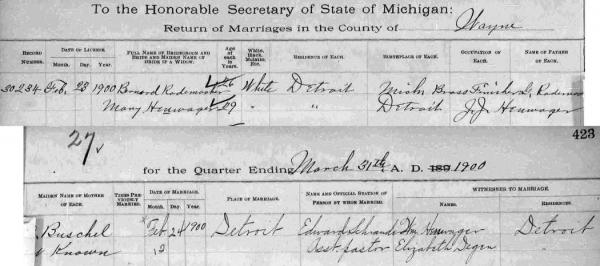 To the Honorable Secretary of State of Michigan:
Return of Marriages in the County of Wayne
RECORD NUMBER. DATE OF LICENSE. Month. Day. Year. FULL NAME OF BRIDEGROOM AND BRIDE AND MAIDEN NAME OF BRIDE IF A WIDOW. Age of each in Years. White, Black, Mulatto, Etc. RESIDENCE OF EACH. BIRTHPLACE OF EACH. OCCUPATION OF EACH. NAME OF FATHER OF EACH.
30234 Feb. 23 1900 Bernard Rademacher 26 White Detroit Mich Brass Finisher
Mary Heuwager 29 " Detroit J.J. Heuwager
27
423
for the Quarter Ending March 31th A. D. 189 1900
MAIDEN NAME OF MOTHER OF EACH. TIMES PREVIOUSLY MARRIED. DATE OF MARRIAGE. Month. Day. Year. PLACE OF MARRIAGE. NAME AND OFFICIAL STATION OF PERSON BY WHOM MARRIED. WITNESSES TO MARRIAGE. NAMES. RESIDENCES.
Buschel Feb 24 1900 Detroit Edward Wm. Heuwager Detroit
Known Asst pastor Elizabeth Degen